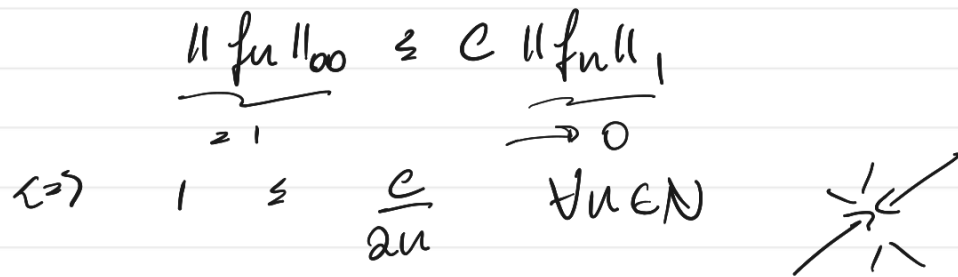 ‖fn‖∞ ≤ C ‖fn‖1
= 1 → 0
<=> 1 ≤ C/2n ∀n∈N ↯